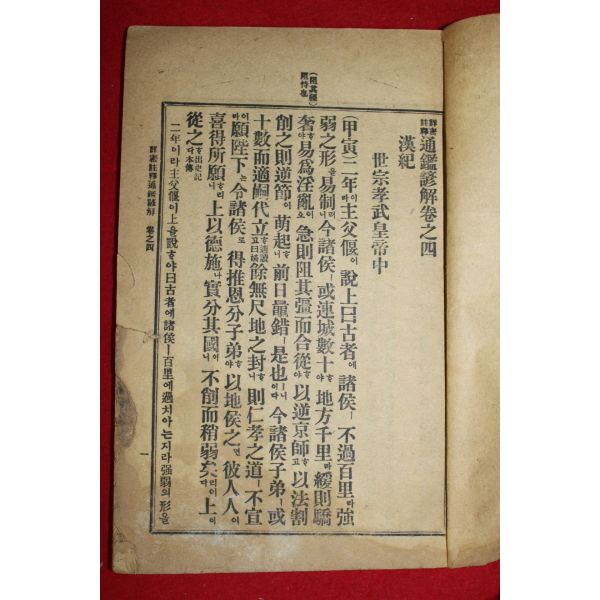 詳密註釋通鑑諺解卷之四
漢紀
世宗孝武皇帝中
(甲寅)二年이라主父偃이說上曰古者에諸侯ㅣ不過百里라强
弱之形을易制러니今諸侯ㅣ或連城數十하야地方千里라緩則驕
奢하야易爲淫亂이오急則阻其彊而合從하야以逆京師하고以法割
創之則逆節이萌起하나니前日鼂錯ㅣ是也ㅣ니이다今諸侯子弟ㅣ或
十數而適嗣代立하고餘無尺地之封하니則仁孝之道ㅣ不宣이라
願陛下는令諸侯로得推恩分子弟하야以地侯之면彼人人이
喜得所願하리니上以德施나實分其國이니不削而稍弱矣리이다上이
從之하다出史記本傳
二年이라主父偃이上을說하야曰古者에諸侯ㅣ百里에過치아는지라强弱의形을
詳密註釋通鑑諺解 卷之四 一